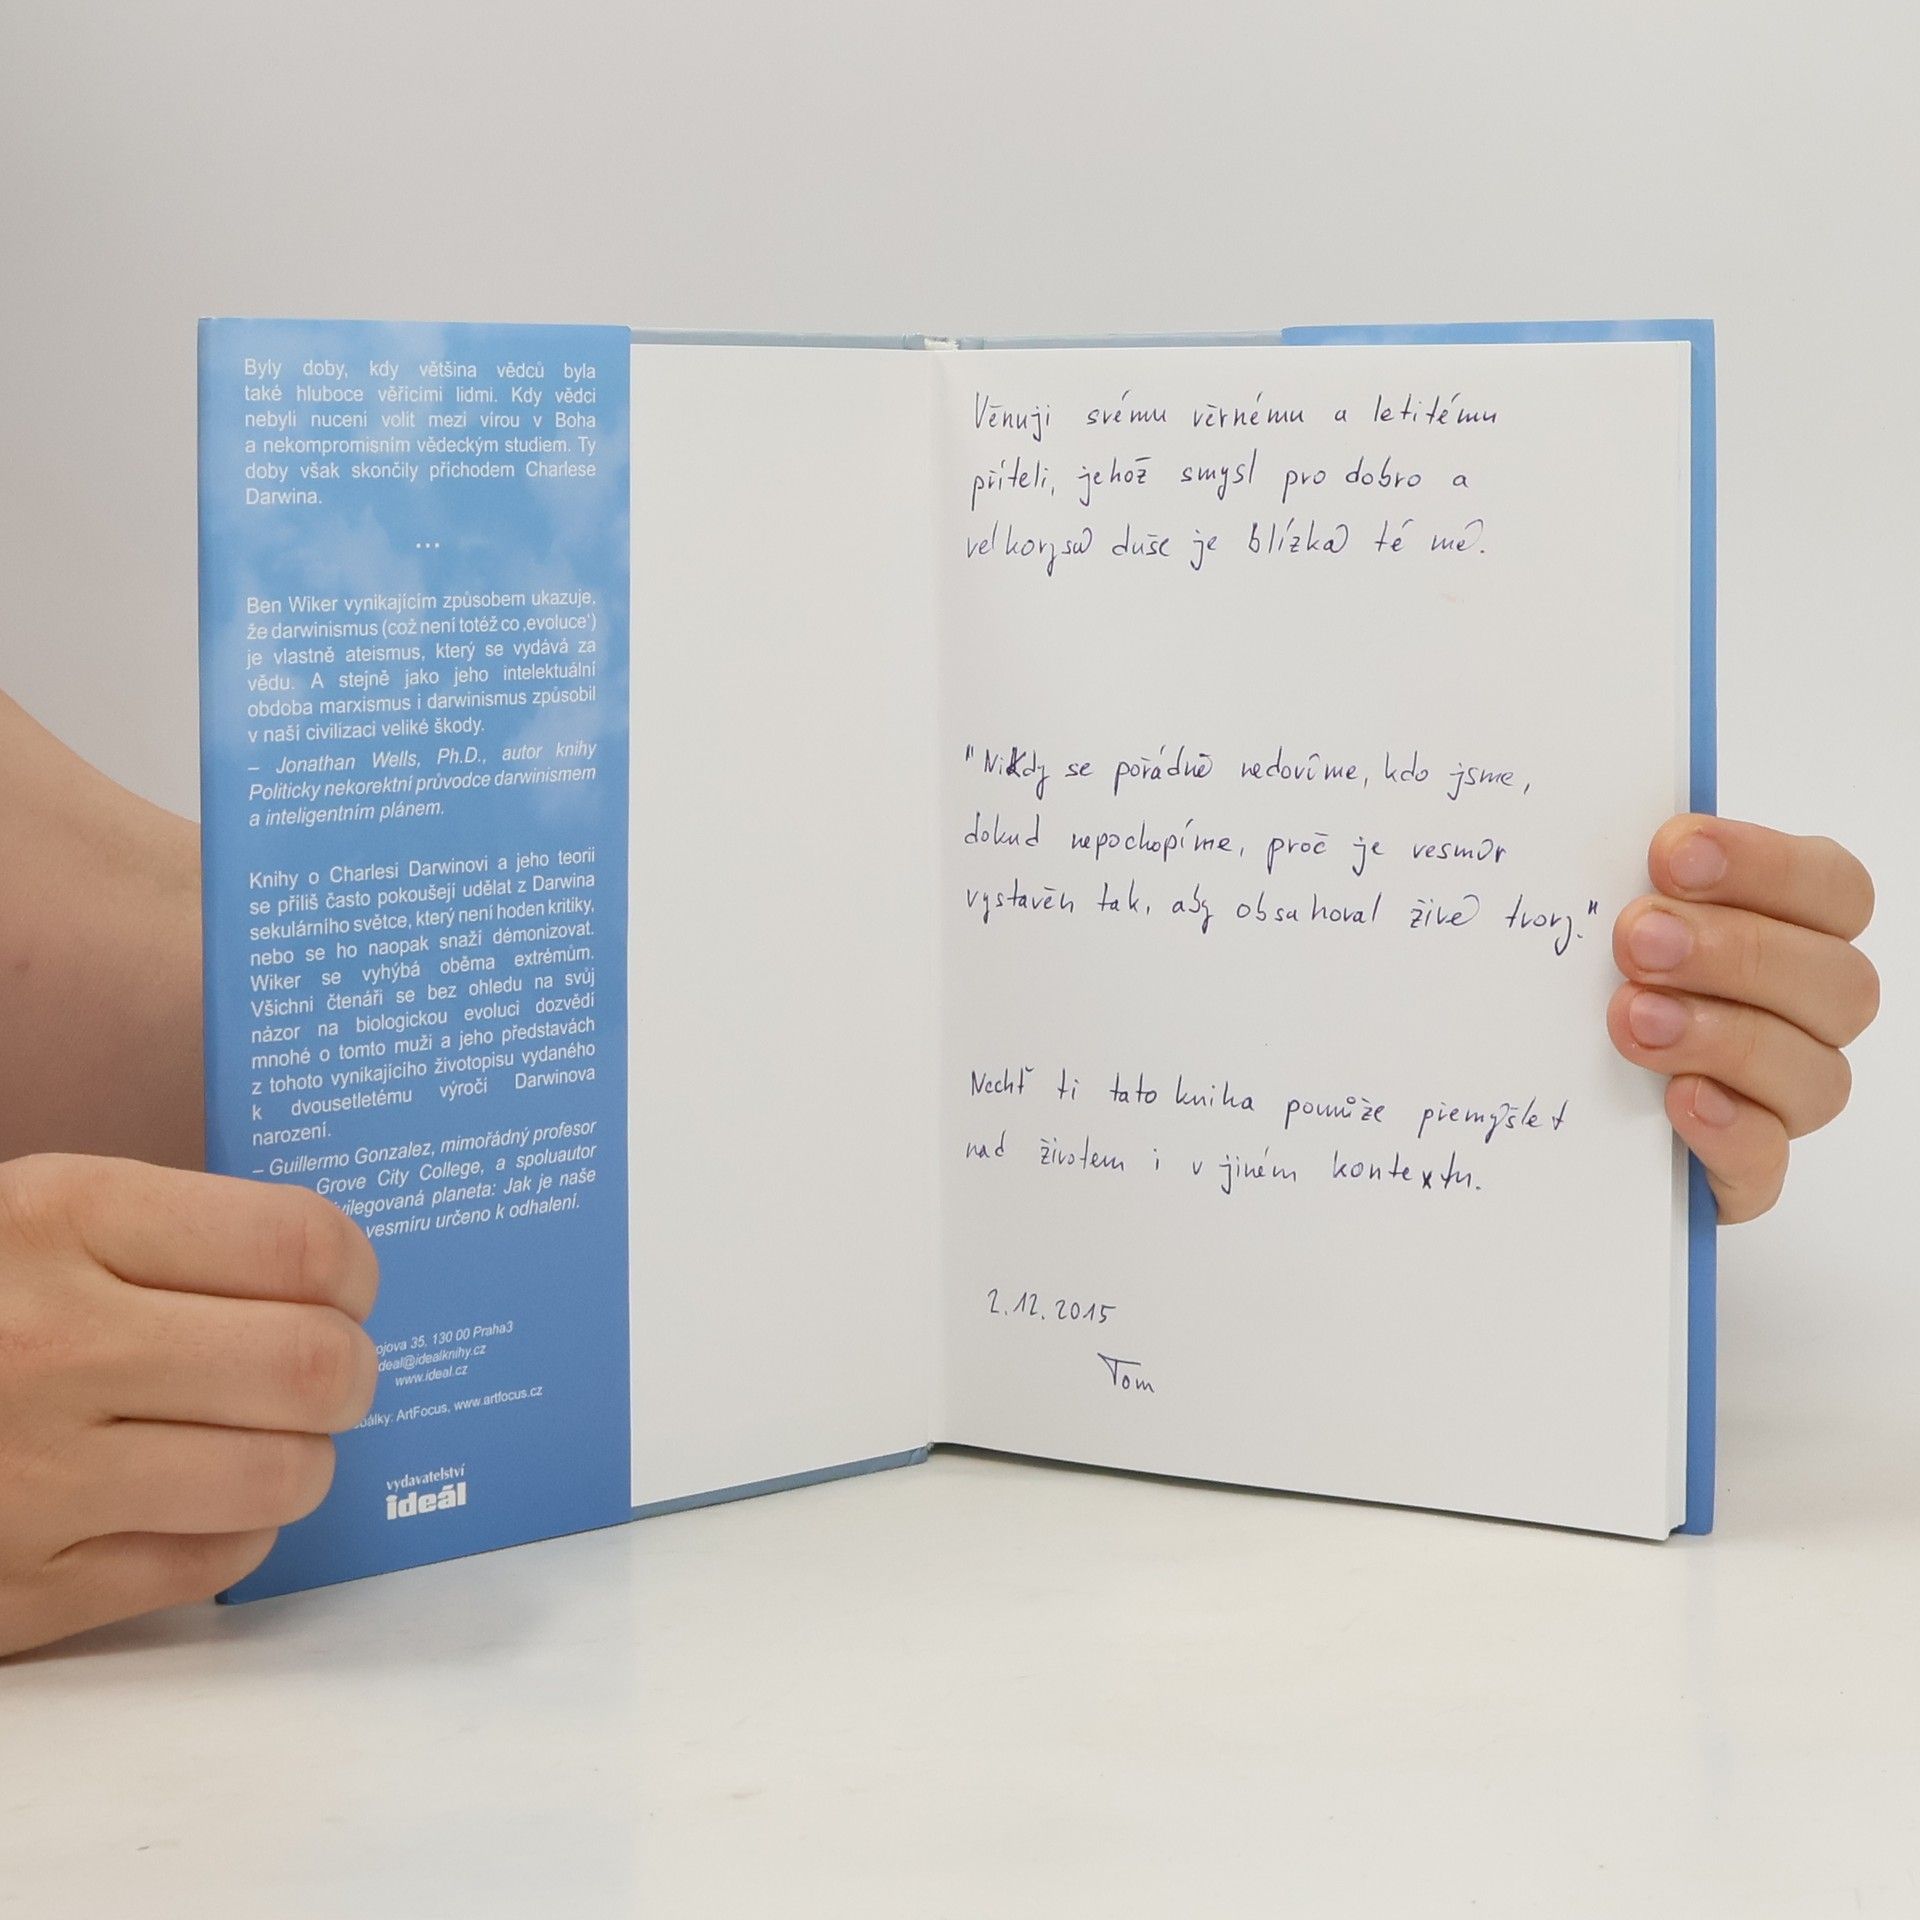 Byly doby, kdy většina vědců byla
také hluboce věřícími lidmi. Kdy vědci
nebyli nuceni volit mezi vírou v Boha
a nekompromisním vědeckým studiem. Ty
doby však skončily příchodem Charlese
Darwina.
...
Ben Wiker vynikajícím způsobem ukazuje,
že darwinismus (což není totéž co ‚evoluce‘)
je vlastně ateismus, který se vydává za
vědu. A stejně jako jeho intelektuální
obdoba marxismus i darwinismus způsobil
v naší civilizaci veliké škody.
– Jonathan Wells, Ph.D., autor knihy
Politicky nekorektní průvodce darwinismem
a inteligentním plánem.
Knihy o Charlesi Darwinovi a jeho teorii
se příliš často pokoušejí udělat z Darwina
sekulárního světce, který není hoden kritiky,
nebo se ho naopak snaží démonizovat.
Wiker se vyhýbá oběma extrémům.
Všichni čtenáři se bez ohledu na svůj
názor na biologickou evoluci dozvědí
mnohé o tomto muži a jeho představách
z tohoto vynikajícího životopisu vydaného
k dvousetletému výročí Darwinova
narození.
– Guillermo Gonzalez, mimořádný profesor
Grove City College, a spoluautor
vilegovaná planeta: Jak je naše
vesmíru určeno k odhalení.
ojova 35, 130 00 Praha3
deal@idealknihy.cz
www.ideal.cz
bálky: ArtFocus, www.artfocus.cz
vydavatelství
ideál
Věnuji svému věrnému a letitému
příteli, jehož smysl pro dobro a
velkorysá duše je blízká té mé.
"Nikdy se pořádně nedovíme, kdo jsme,
dokud nepochopíme, proč je vesmír
vystavěn tak, aby obsahoval živé tvory."
Nechť ti tato kniha pomůže přemýšlet
nad životem i v jiném kontextu.
2.12.2015
Tom